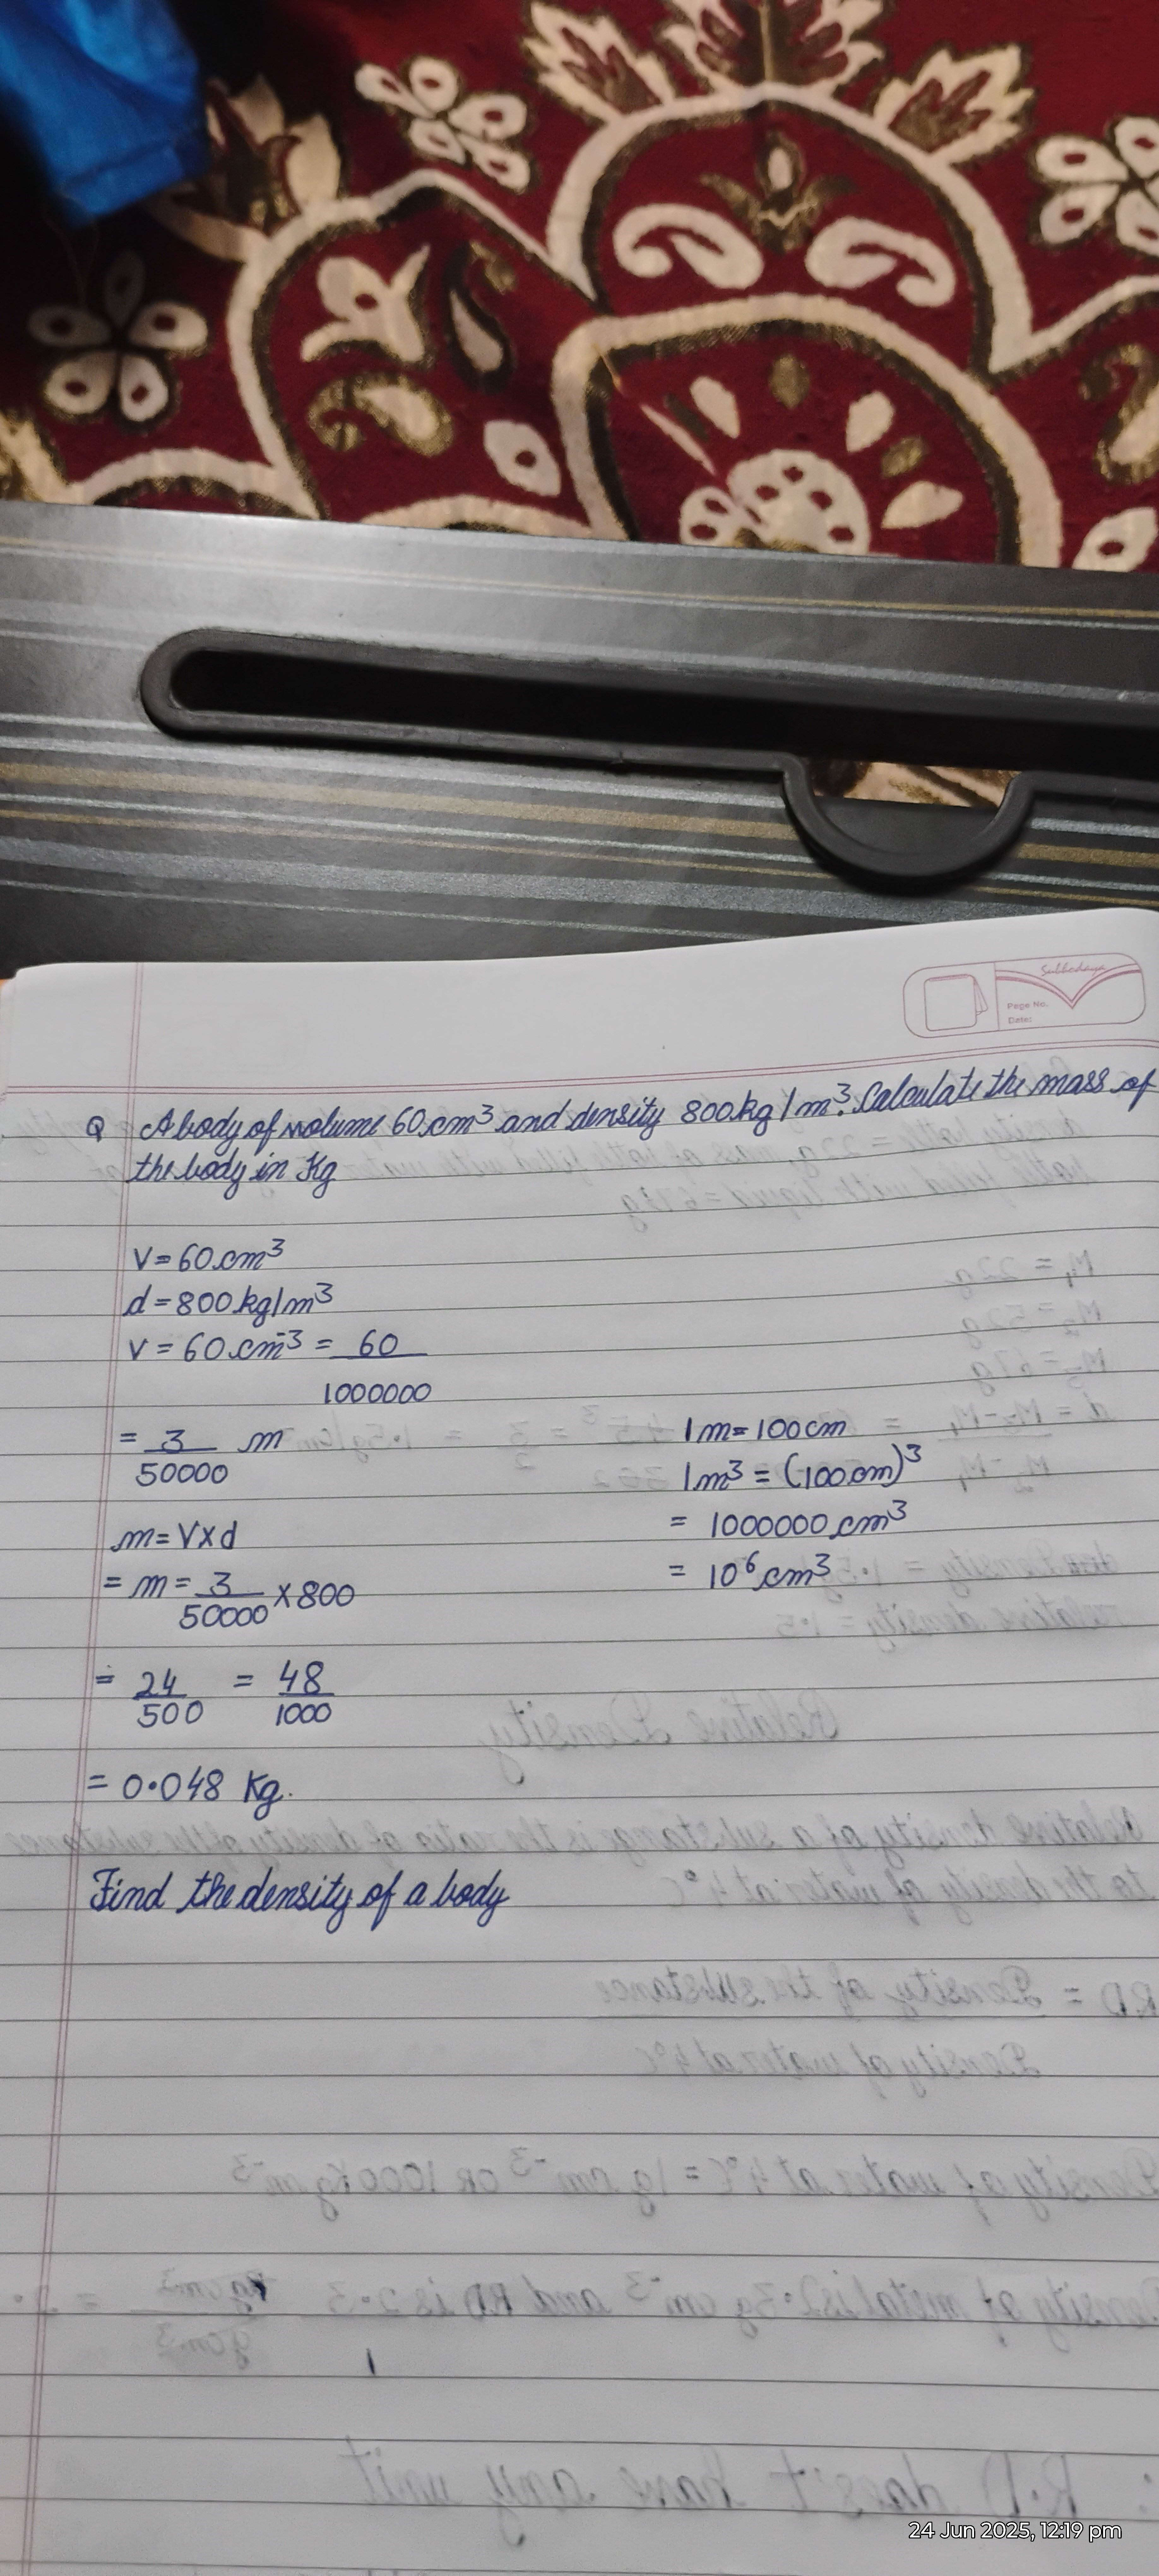 Subhodaya
Page No.
Date:
Q A body of volume 60 cm³ and density 800 kg/m³. Calculate the mass of
the body in Kg
V = 60 cm³
d = 800 kg/m³
V = 60 cm⁻³ = 60
1000000
= 3 m
50000
1m = 100 cm
1m³ = (100 cm)³
= 1000000 cm³
= 10⁶ cm³
m = V × d
= m = 3 × 800
50000
= 24 = 48
500 1000
= 0.048 Kg.
Find the density of a body
24 Jun 2025, 12:19 pm